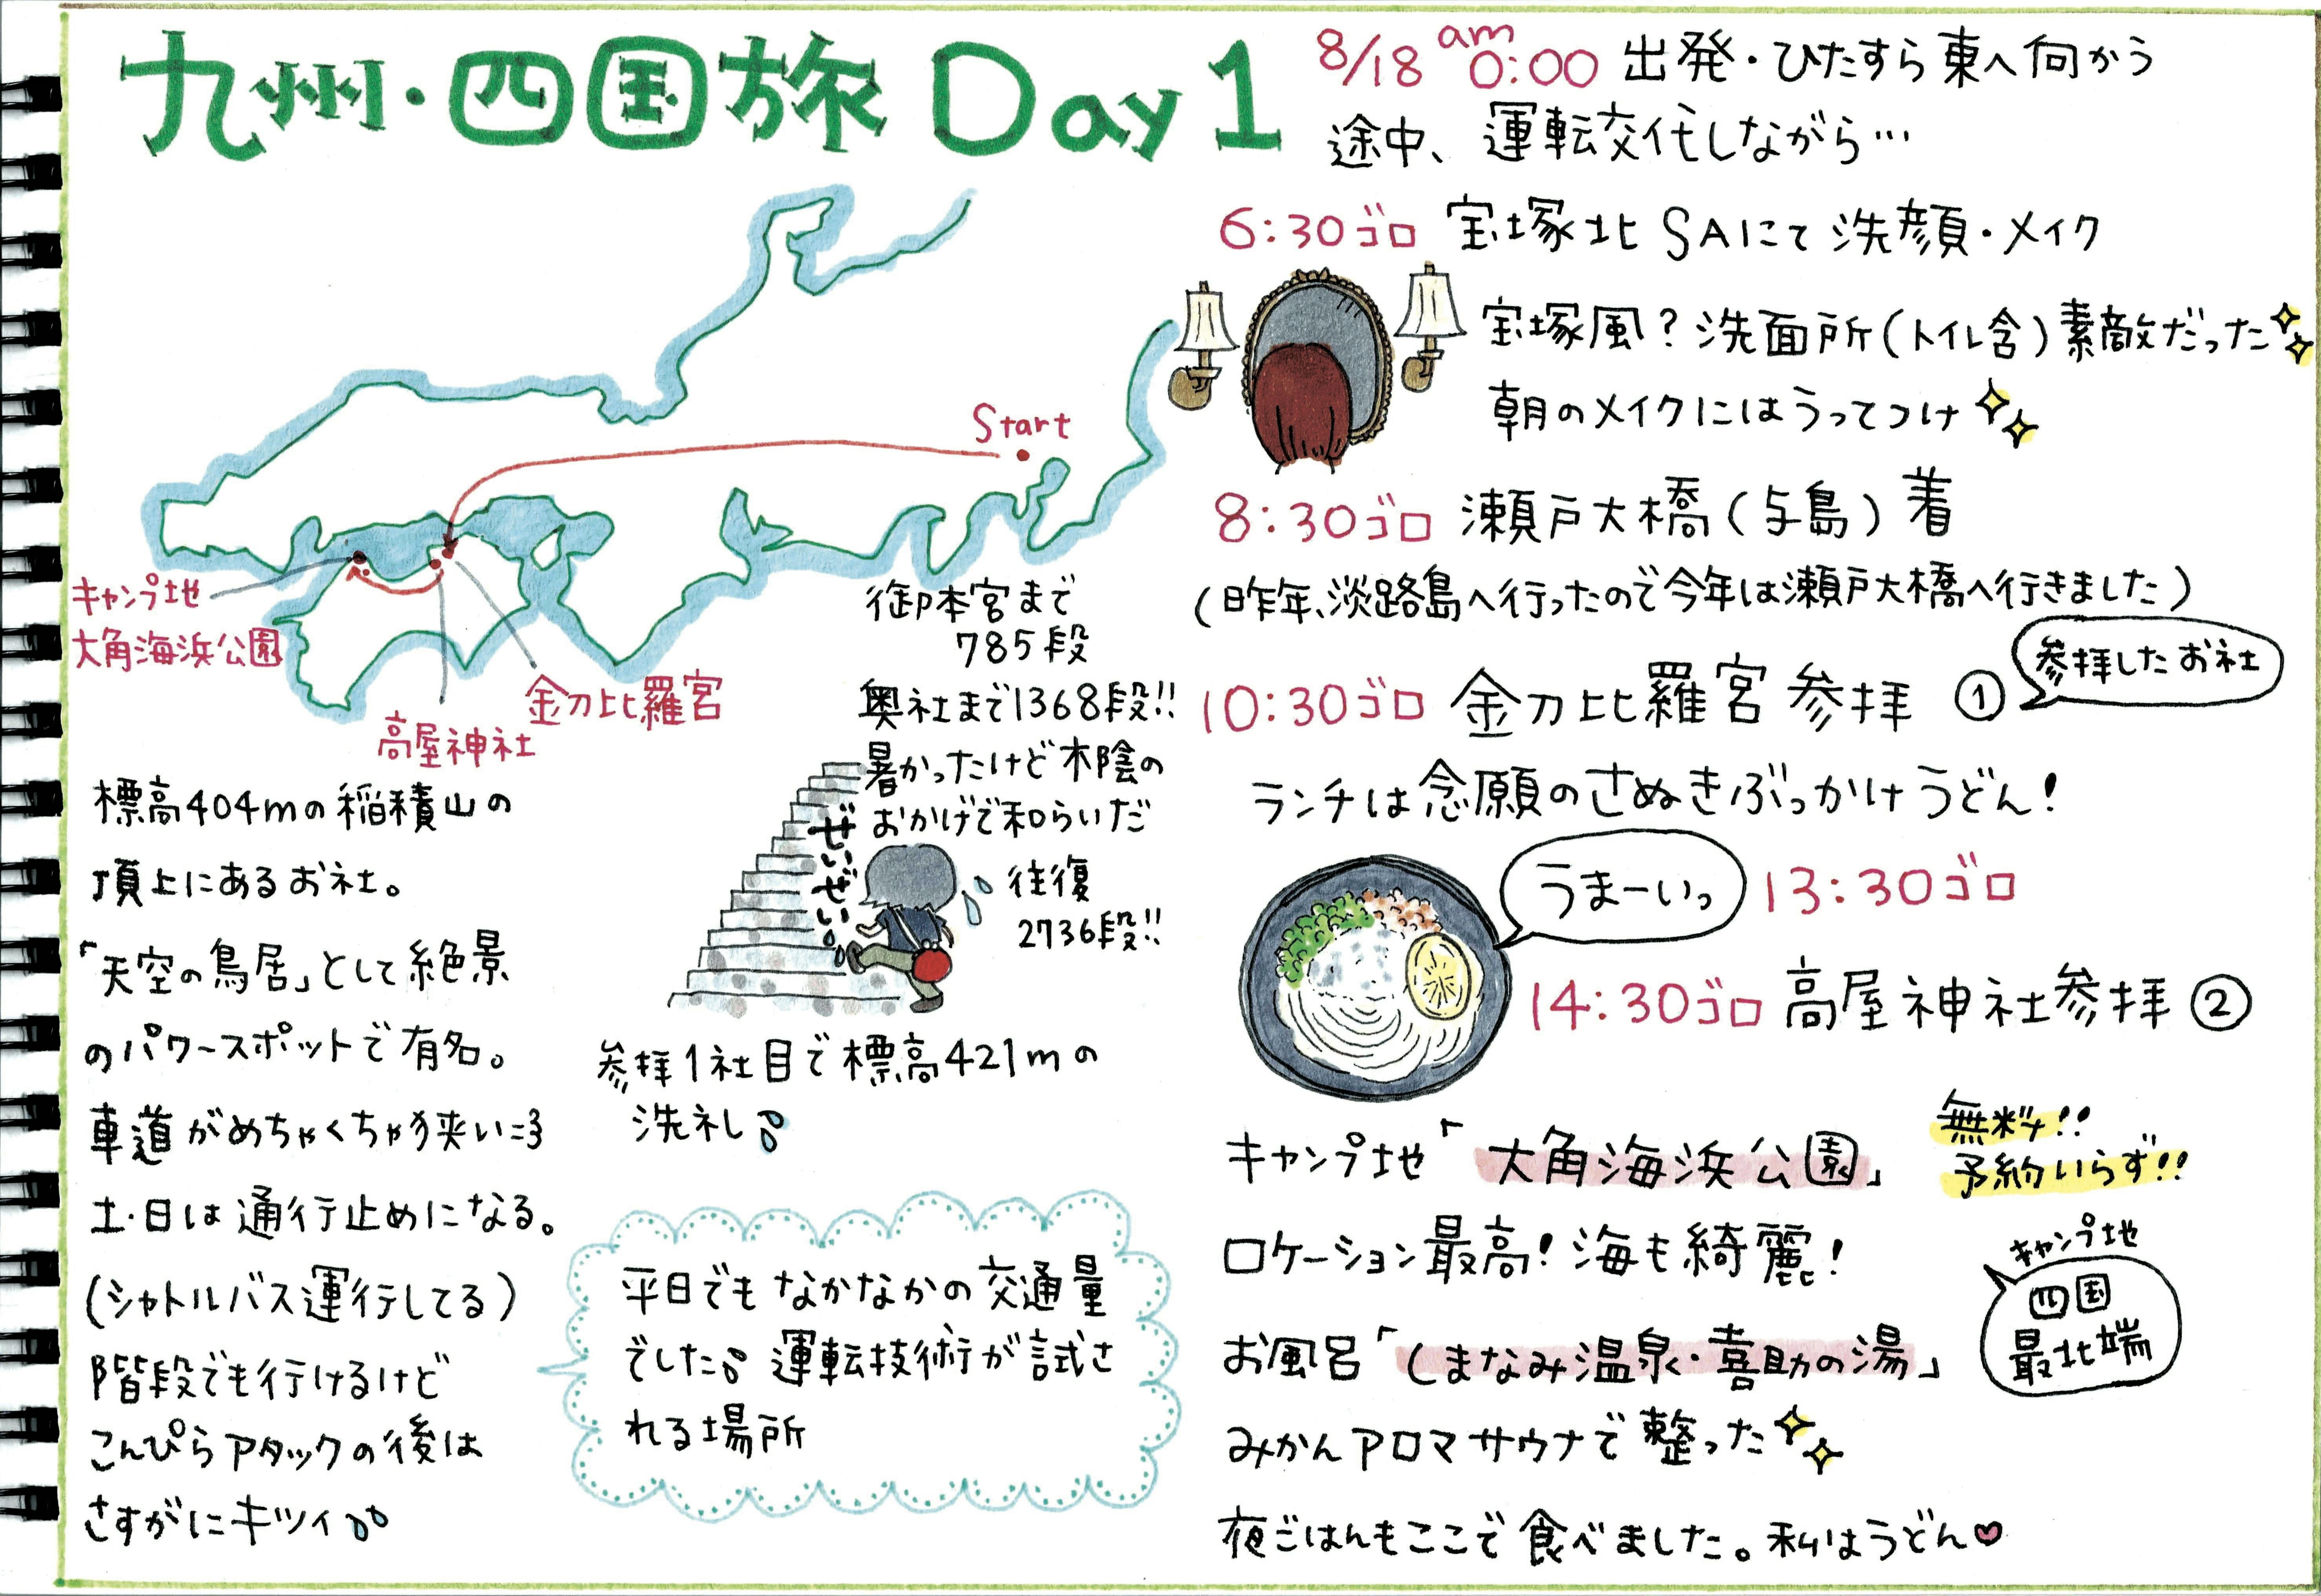 九州・四国旅 Day 1
8/18 am 0:00 出発・ひたすら東へ向かう
途中、運転交代しながら…
6:30ゴロ 宝塚北SAにて洗顔・メイク
宝塚風?洗面所(トイレ含)素敵だった
朝のメイクにはうってつけ
8:30ゴロ 瀬戸大橋(与島)着
(昨年、淡路島へ行ったので今年は瀬戸大橋へ行きました)
10:30ゴロ 金刀比羅宮 参拝 ①
参拝したお社
ランチは念願のさぬきぶっかけうどん!
うまーいっ
13:30ゴロ
14:30ゴロ 高屋神社参拝②
キャンプ地「大角海浜公園」
無料!!
予約いらず!!
ロケーション最高!海も綺麗!
キャンプ地
四国
最北端
お風呂「しまなみ温泉・喜助の湯」
みかんアロマサウナで整った
夜ごはんもここで食べました。私はうどん♥
Start
キャンプ地
大角海浜公園
金刀比羅宮
高屋神社
御本宮まで
785段
奥社まで1368段!!
暑かったけど木陰の
おかげで和らいだ
往復
2736段!!
ぜぃぜぃ
参拝1社目で標高421mの
洗礼
標高404mの稲積山の
頂上にあるお社。
「天空の鳥居」として絶景
のパワースポットで有名。
車道がめちゃくちゃ狭い=3
土・日は通行止めになる。
(シャトルバス運行してる)
階段でも行けるけど
こんぴらアタックの後は
さすがにキツイ
平日でもなかなかの交通量
でした 運転技術が試さ
れる場所